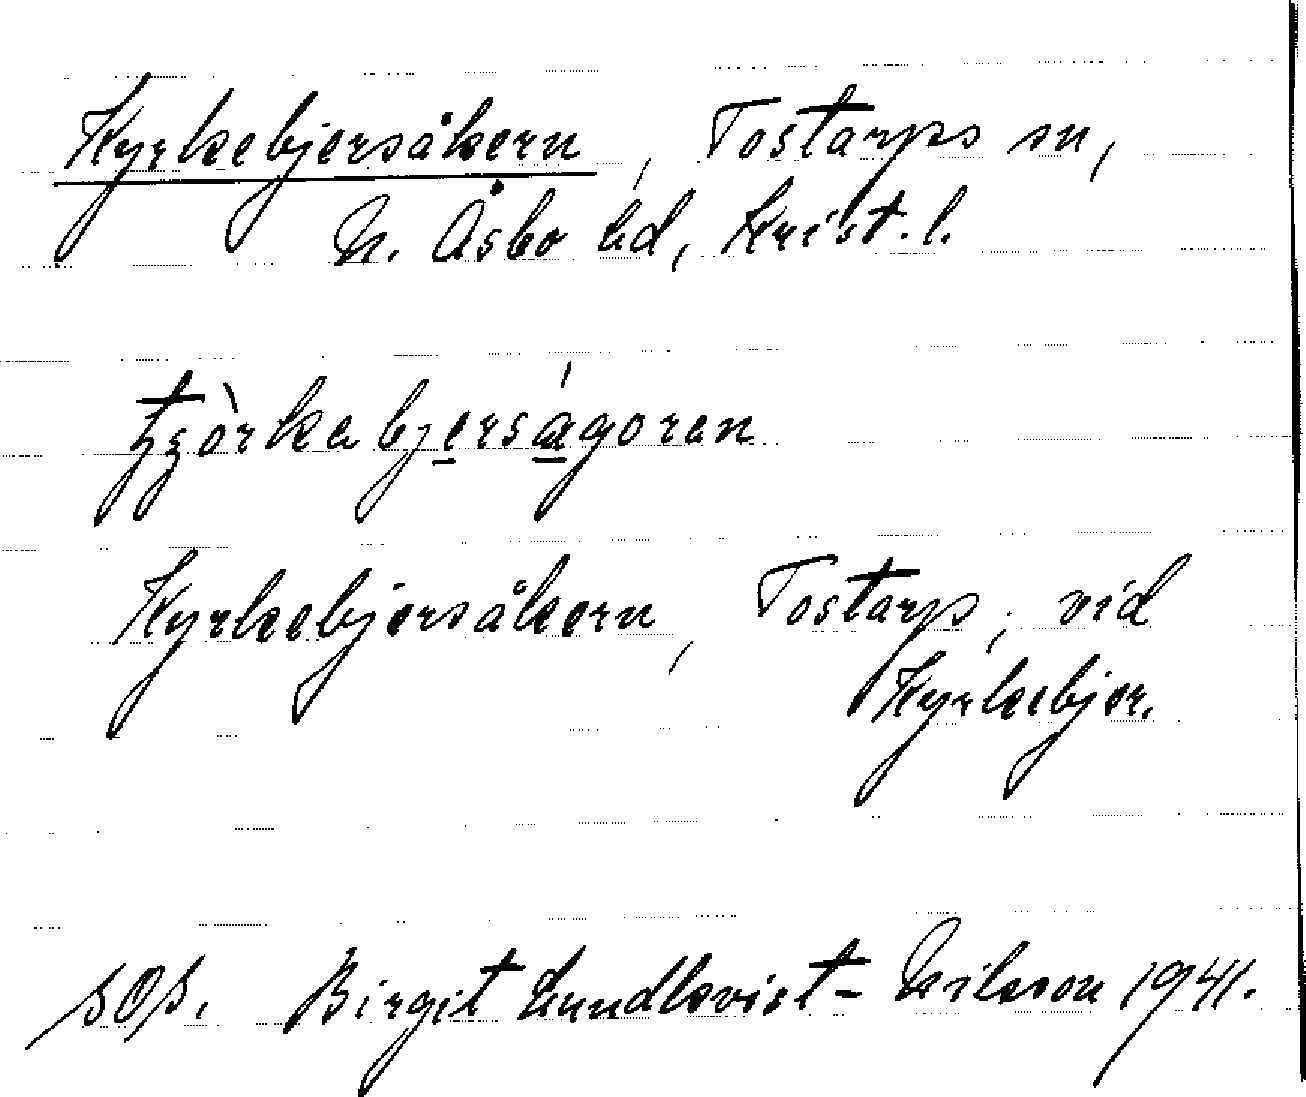 Kyrkebjersåkern, Tostarps sn,
N. Åsbo hd, Krist. l.
tʒòrkabjerságoren
Kyrkebjersåkern, Tostarp, vid
Kyrkebjer.
SOS. Birgit Lundkvist-Nilsson 1941.